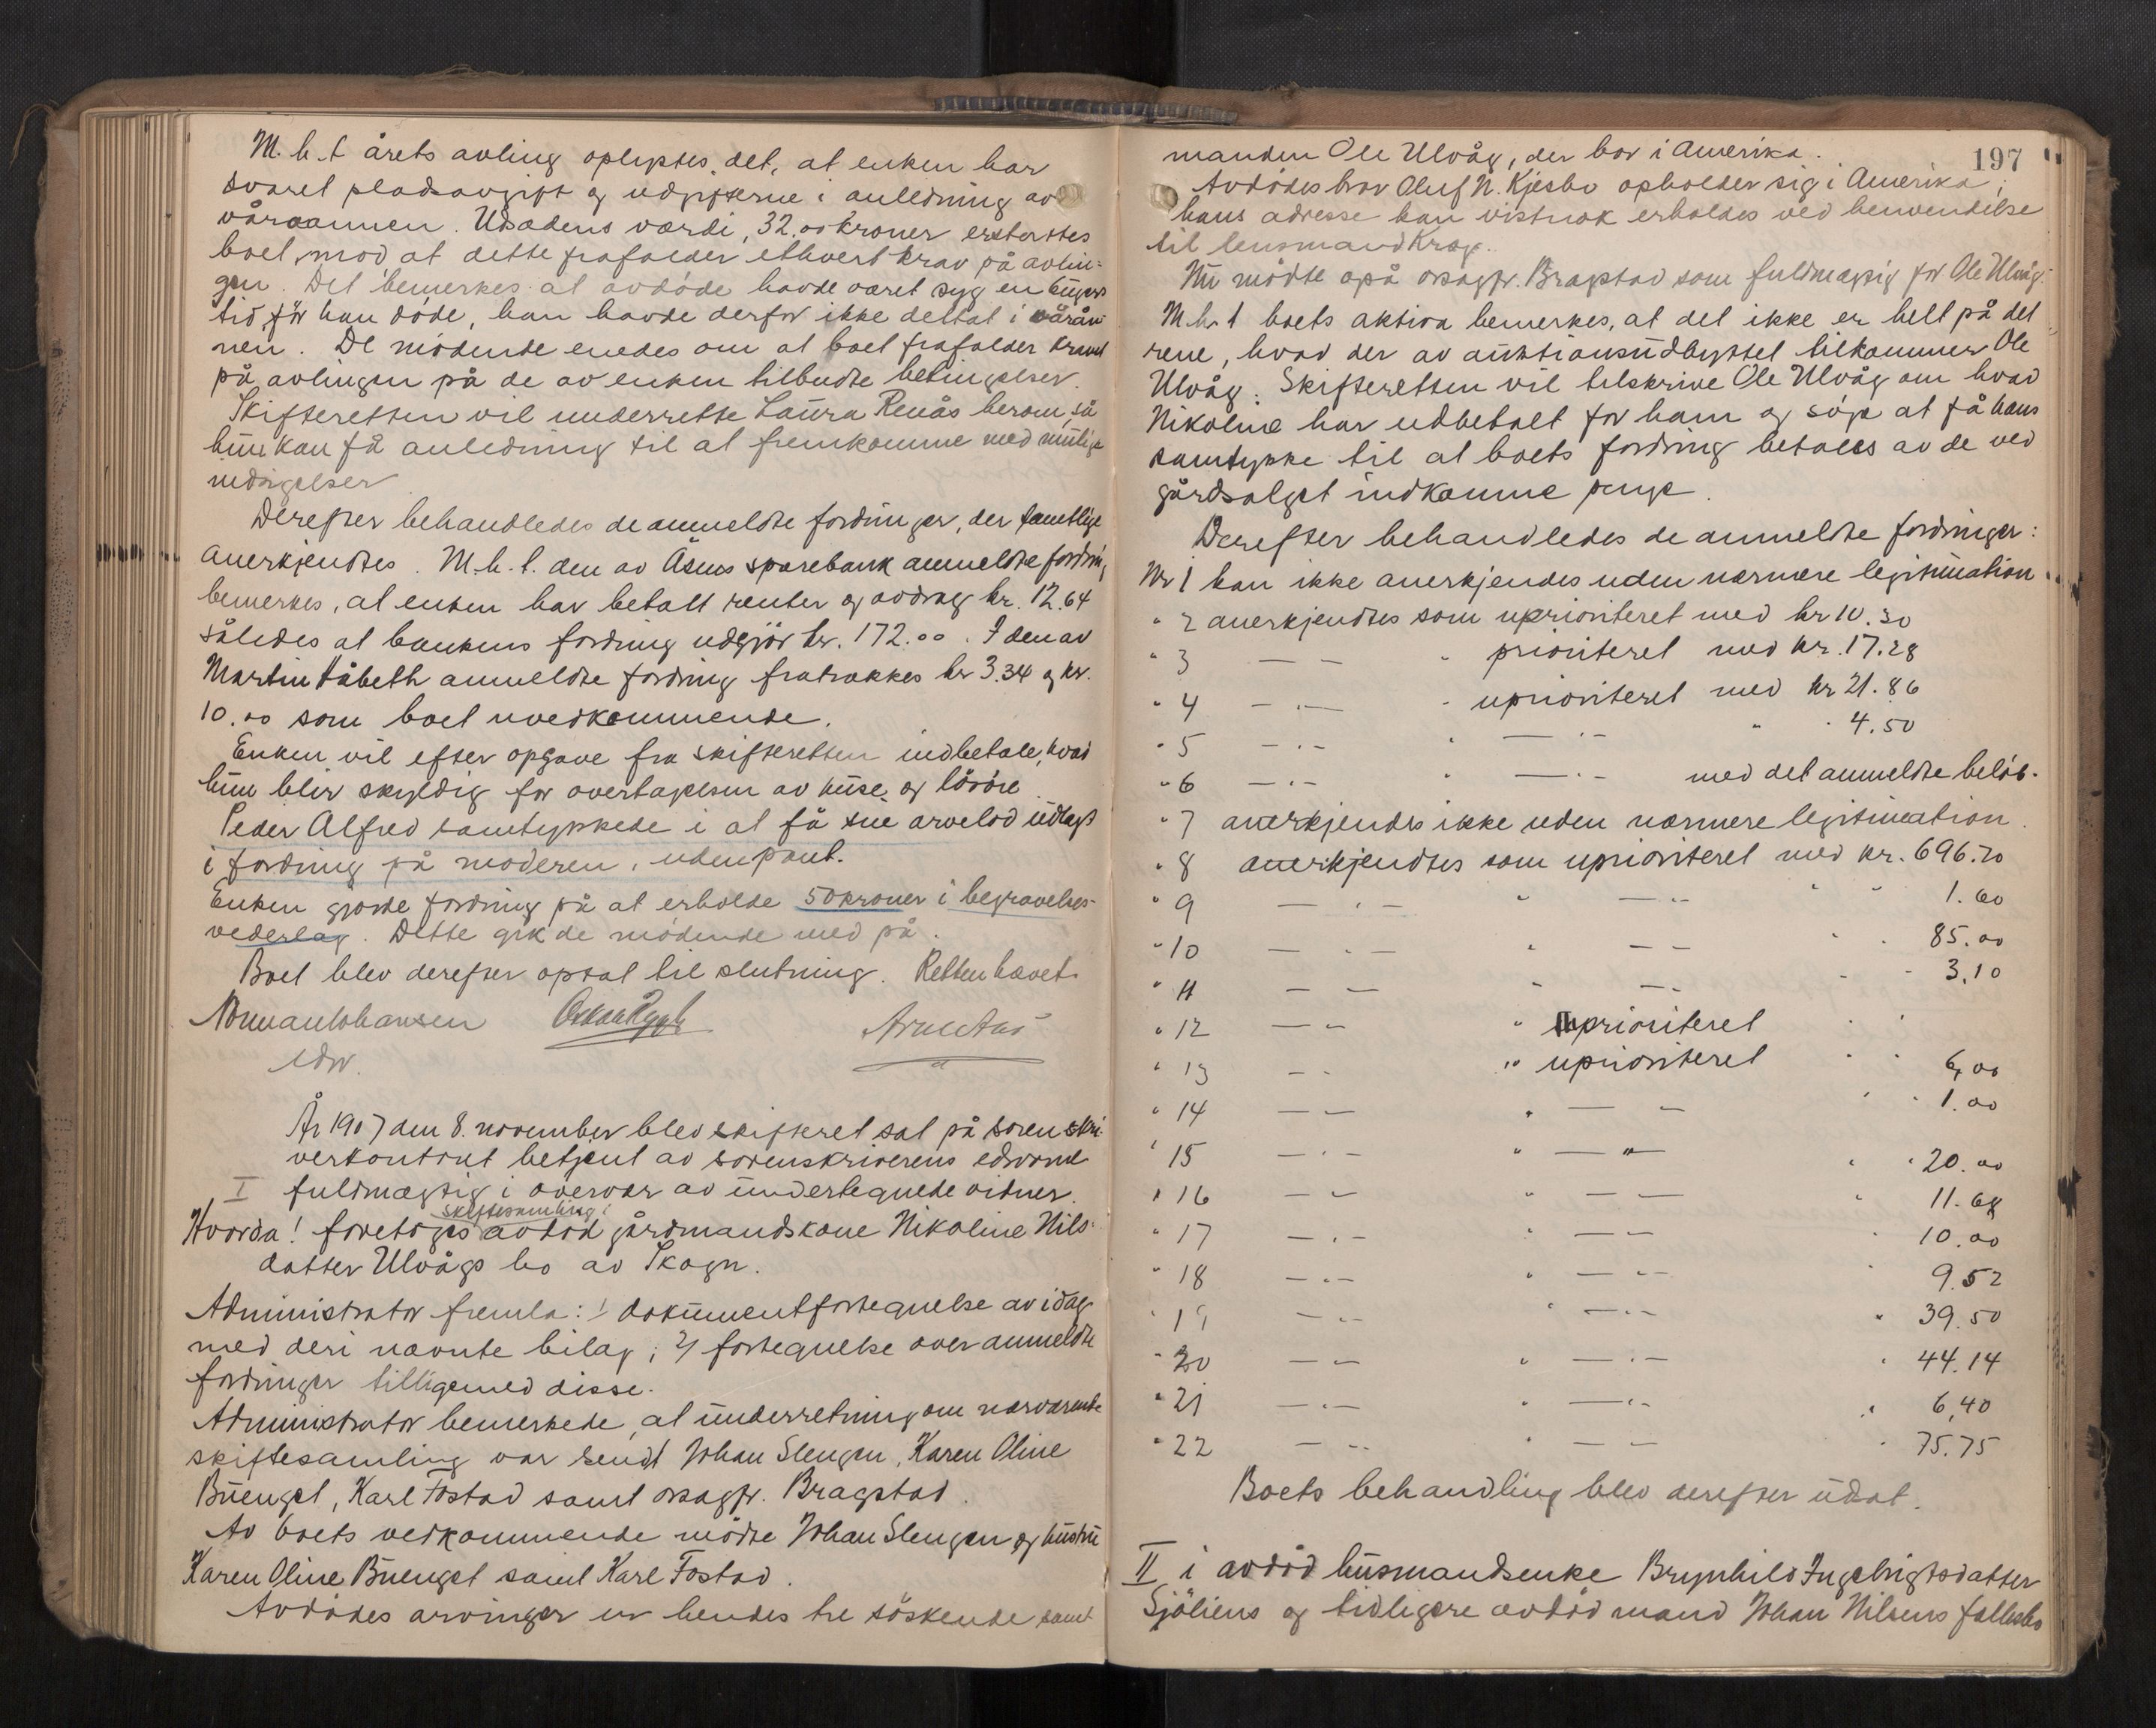 M. h. t årets avling oplystes det, at enken har
svaret pladsavgift og udgifterne i anledning av
våraannen. Udsædens værdi, 32.00 kroner erstattes
boet, mod at dette frafalder ethvert krav på avlin-
gen. Det bemerkes at avdöde havde været syg en længere
tid för han döde, han havde derfor ikke deltat i vårån
nen. De mödende enedes om at boet frafalder kravet
på avlingen på de av enken tilbudte betingelser.
Skifteretten vil underrette Laura Renås herom, så
hun kan få anledning til at fremkomme med mulige
indsigelser
Derefter behandledes de anmeldte fordringer, der samtlige
anerkjendtes. M. h. t. den av Åsens sparebank anmeldte fordring
bemerkes, at enken har betalt renter og avdrag kr. 12.64
således at bankens fordring udgjör kr. 172.00. I den av
Martin Håbeth anmeldte fordring fratrækkes kr 3.34 og kr.
10.00 som boet uvedkommende.
Enken vil efter opgave fra skifteretten indbetale, hvad
hun blir skyldig for overtagelsen av huse og lösöre
Peder Alfred samtykkede i at få sin arvelod udlagt
i fordring på moderen, uden pant.
Enken gjorde fordring på at erholde 50 kroner i begravelses-
vederlag. Dette gik de mödende med på.
Boet blev derefter optat til slutning. Retten hævet.
Johansen
edsv.
År 1907 den 8. november blev skifteret sat på sorenskri-
verkontoret betjent av sorenskriverens edsvorne
I fuldmægtig i overvær av undertegnede vidner.
skiftesamling i
Hvorda! foretoges avdöd gårdmandskone Nikoline Nils-
datter Ulvågs bo av Skogn.
Administrator fremla: 1 dokumentfortegnelse av idag
med deri nævnte bilag; 2) fortegnelse over anmeldte
fordringer tilligemed disse.
Administrator bemerkede, at underretning om nærværende
skiftesamling var sendt Johan Slengen, Karen Oline
Buenget, Karl Fostad samt osagfr. Bragstad.
Av boets vedkommende mödte Johan Slengen og hustru
Karen Oline Buenget samt Karl Fostad.
Avdödes arvinger er hendes tre söskende samt
197
manden Ole Ulvåg, der bor i Amerika.
Avdödes bror Oluf N. Kjesbo opholder sig i Amerika;
hans adresse kan vistnok erholdes ved henvendelse
til lensmand Krog.
Nu mödte også osagfr. Bragstad som fuldmægtig for Ole Ulvåg.
M. h. t boets aktiva bemerkes, at det ikke er helt på det
rene, hvad der av auktionsudbyttet tilkommer Ole
Ulvåg. Skifteretten vil tilskrive Ole Ulvåg om hvad
Nikoline har udbetalt for ham og söge at få hans
samtykke til at boets fordring betales av de ved
gårdsalget indkomne penge.
Derefter behandledes de anmeldte fordringer:
Nr 1 kan ikke anerkjendes uden nærmere legitimation
" 2 anerkjendtes som uprioriteret med kr 10.30
" 3 — — " prioriteret med kr. 17.28
" 4 — " — " uprioriteret med kr 21.86
" 5 — " — " — " — " " 4.50
" 6 — " — " — " — med det anmeldte belöb.
" 7 anerkjendes ikke uden nærmere legitimation.
" 8 anerkjendtes som uprioriteret med kr. 696.20
" 9 — " — " — " — " " 1.60
" 10 — " — " — — " " 85.00
" 11 — — " — " — " " 3,10
" 12 — — " prioriteret " "
" 13 — " " uprioriteret " " 6,00
" 14 — — " — — " " 1.00
" 15 — " — " — " — " " 20.00
" 16 — — " — — " 11.68
" 17 — " — " — — " 10.00
" 18 — " — " — " — " 9.52
" 19 — " — " — " — " 39.50
" 20 — — " — " — " 44.14
" 21 — " — " — " — " 6,40
" 22 — " — " — — " 75.75
Boets behandling blev derefter udsat.
II i avdöd husmandsenke Brynhild Ingebrigtsdatter
Sjöliens og tidligere avdöd mand Johan Nilsens fællesbo